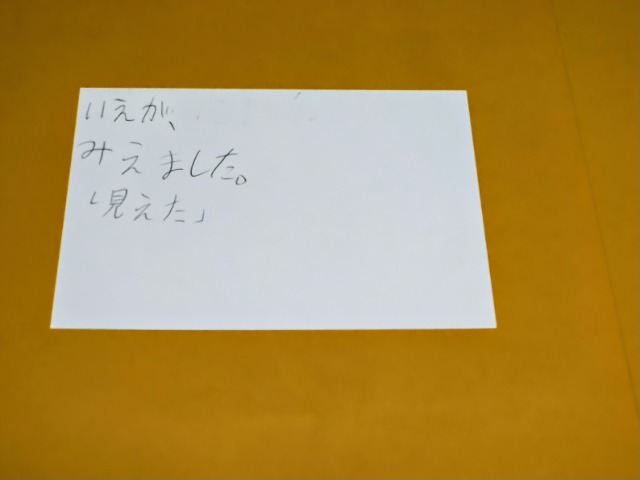 いえが、
みえました。
「見えた」